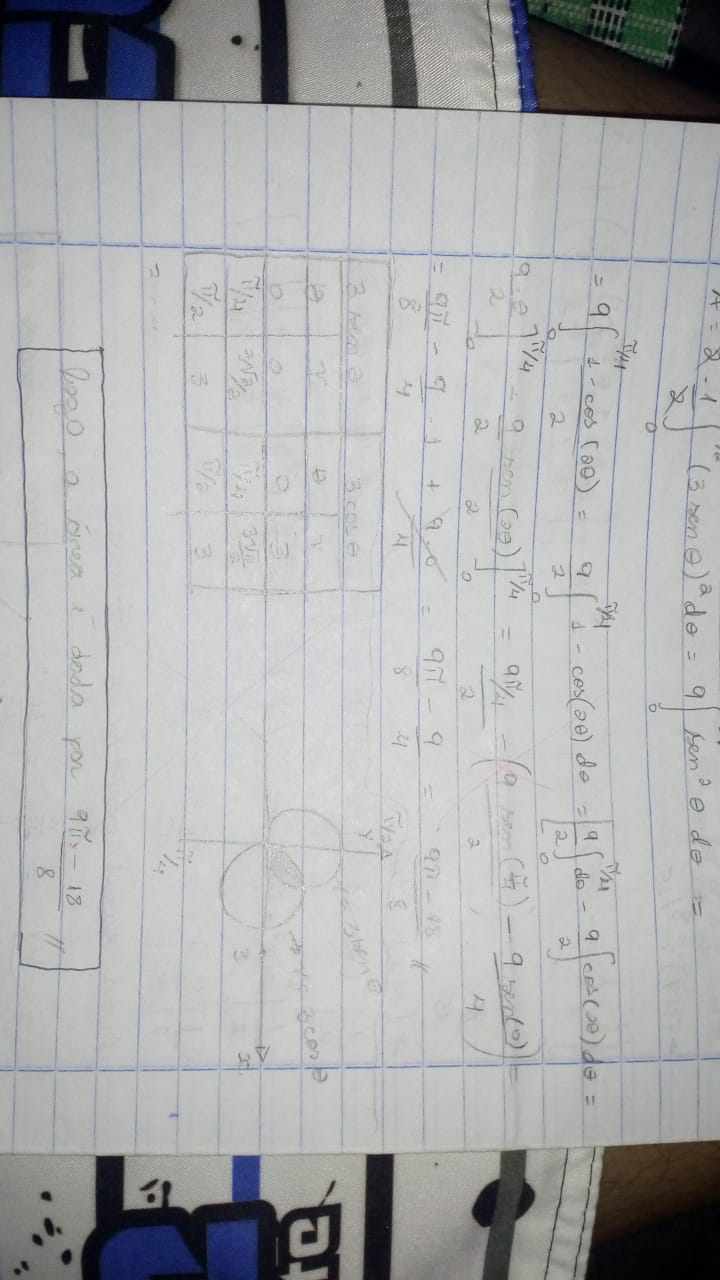 A = 2 · 1/2 ∫₀ (3 sen θ)² dθ = 9 ∫₀ sen² θ dθ =
= 9 ∫₀^π/4 1 - cos (2θ)/2 = 9/2 ∫₀^π/4 1 - cos(2θ) dθ = [9/2 ∫₀^π/4 dθ - 9/2 ∫ cos(2θ) dθ =
9 · θ/2 ]₀^π/4 - 9/2 sen (2θ)/2 ]₀^π/4 = 9π/4/2 - (9 sen(π/)/2 - 9 sen(0)/4) =
= 9π/8 - 9/4 · 1 + 9·0/4 = 9π/8 - 9/4 = 9π - 18/8 //
3 sen θ 3 cos θ
θ r θ r
0 0 0 3
π/4 3√2/2 π/4 3√2/2
π/2 3 π/2 3
π/2
y
r = 3 sen θ
r = 3 cos θ
3
x
π/4
= ....
Logo, a área é dada por 9π - 18/8 //